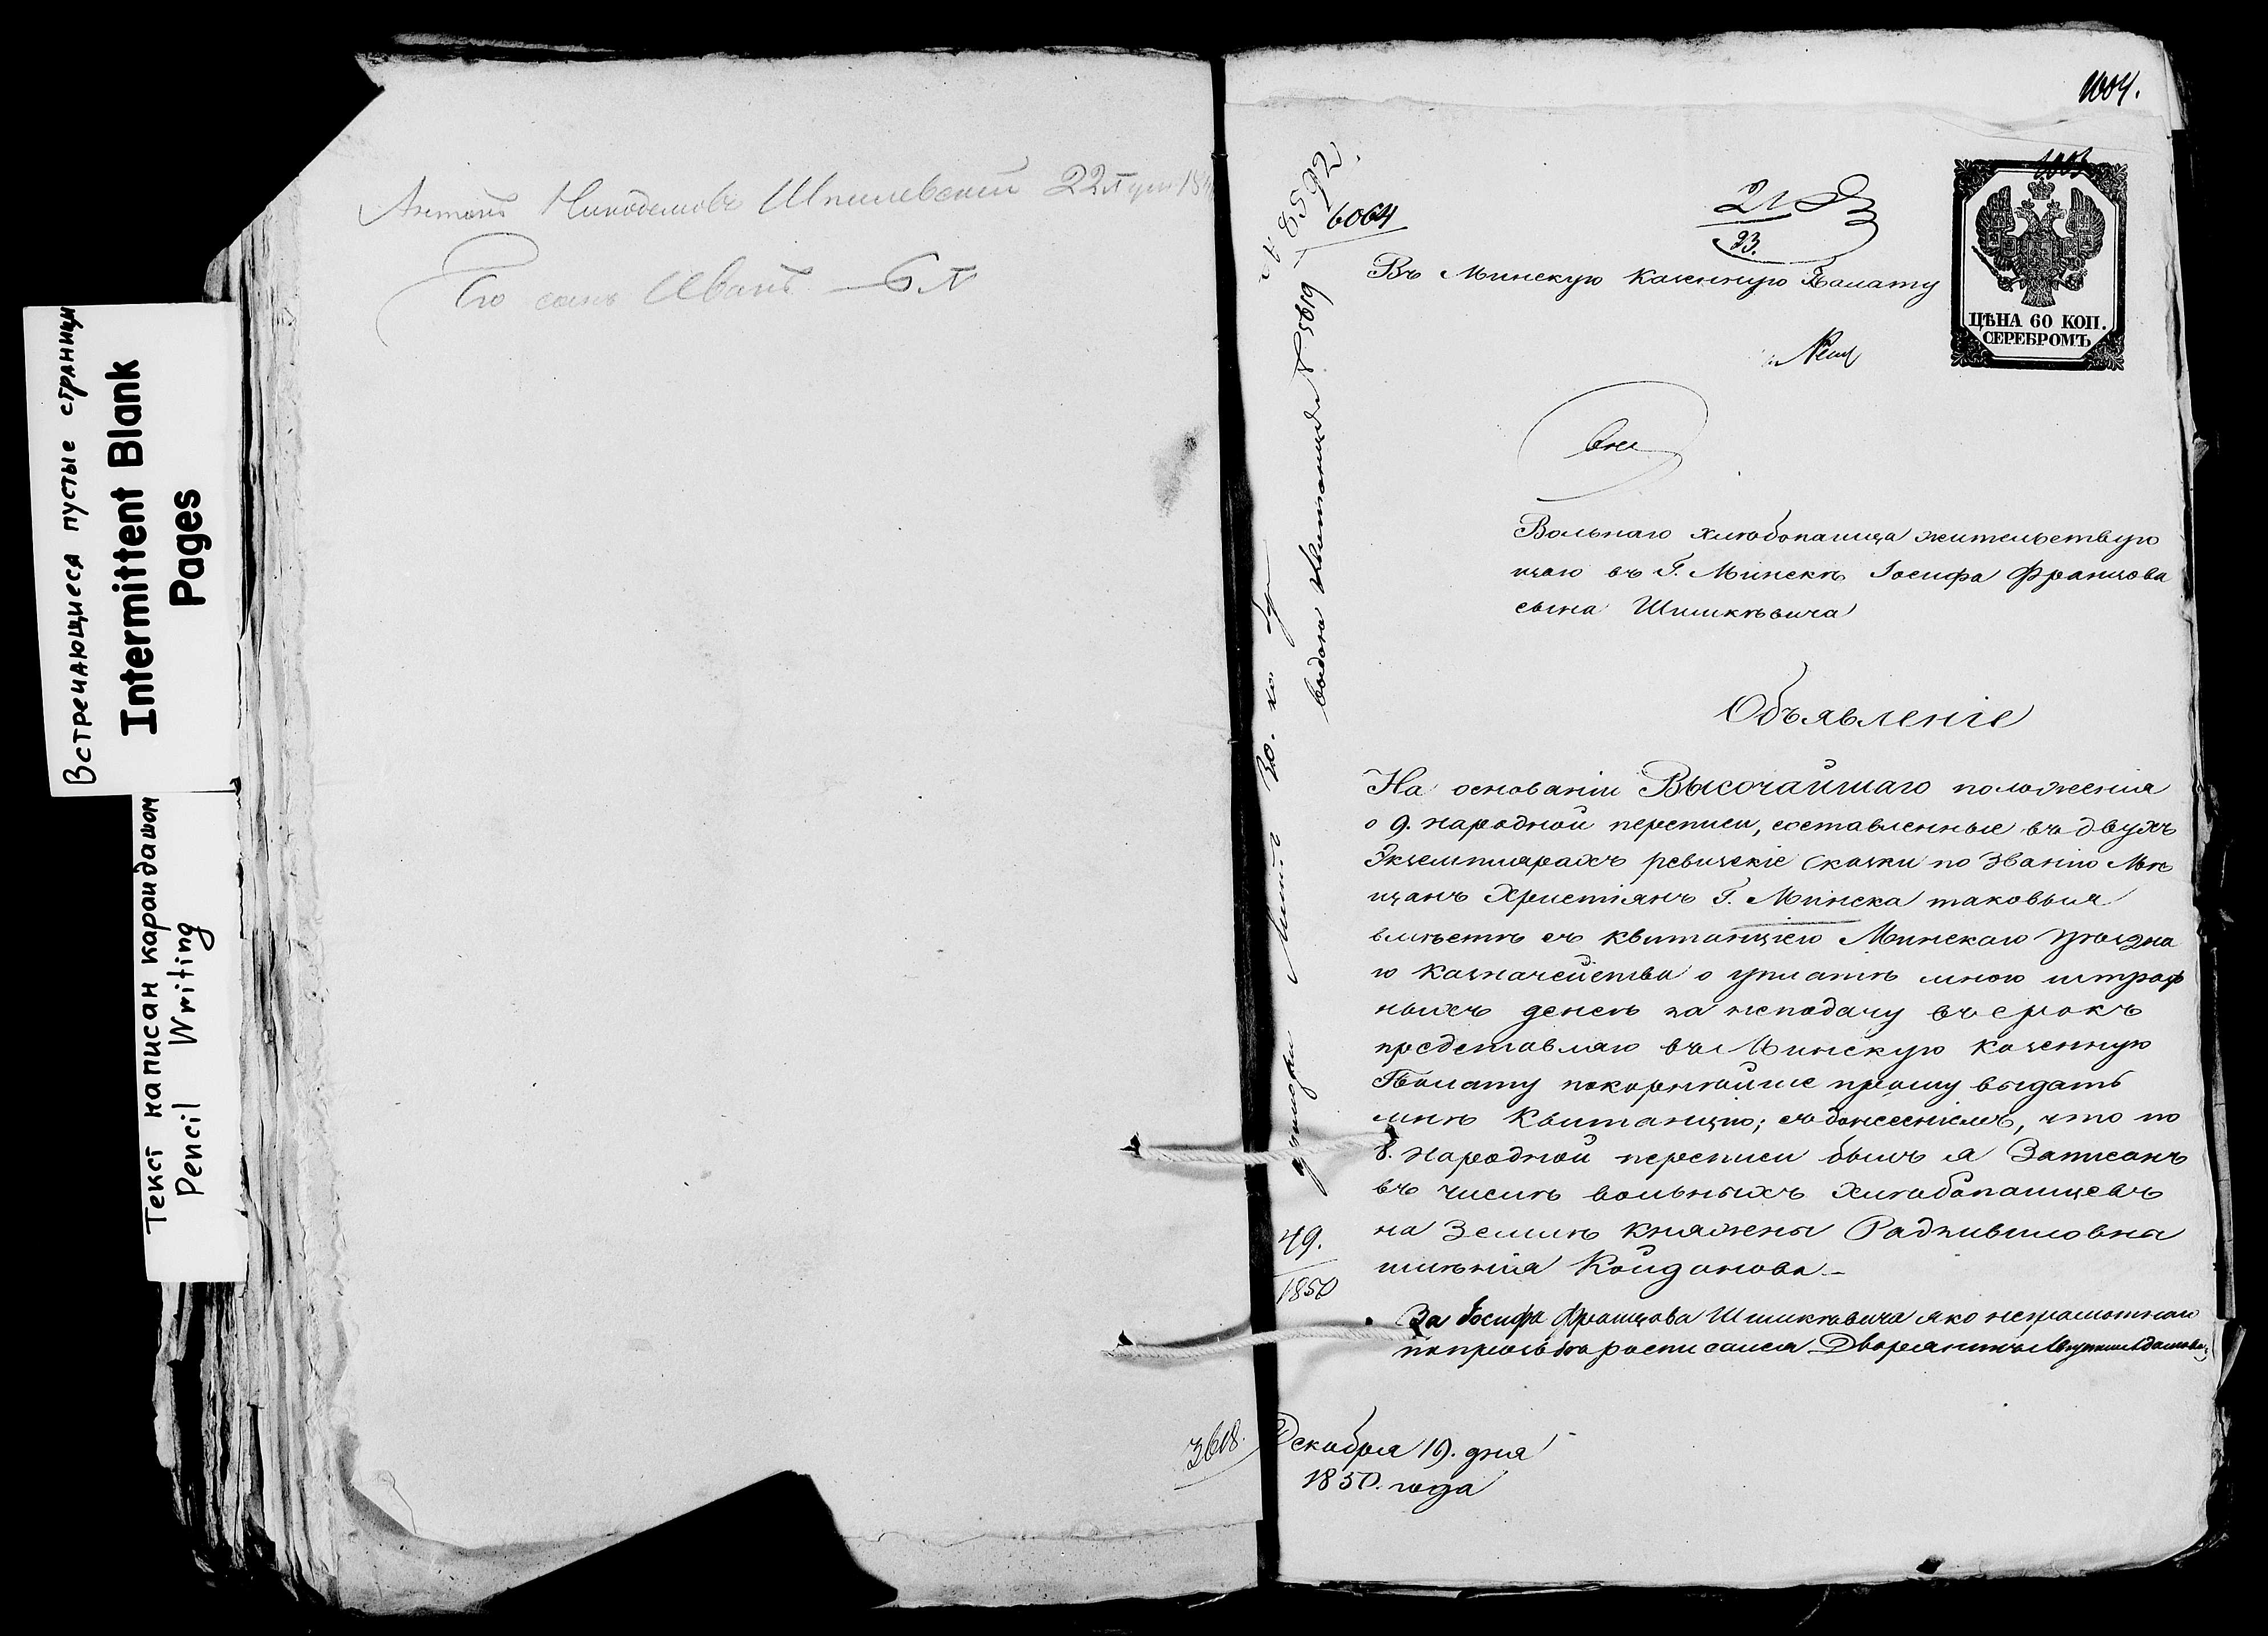 Встречающиеся пустые страницы
Intermittent Blank
Pages
Текст написан карандашом
Pencil Writing
Антонъ Никодимовъ Шпилевскій 22
Его сынъ Иванъ — 6
3618.
1004.
1003
6064
8592.
21
23.
Въ Минскую Казенную Палату
ЦѢНА 60 КОП.
СЕРЕБРОМЪ
Вольнаго хлѣбопашца жительствую
щаго въ Г. Минскѣ Іосифа Францова
сына Шишкѣвича
Объявленіе
На основаніи Высочайшаго положенія
о 9. народной переписи, составленные въ двухъ
Экземплярахъ ревизскіе сказки по Званію Мѣ
щанъ Христіянъ Г. Минска таковыя
вмѣстѣ съ квитанціею Минскаго Уѣздна
го Казначейства о уплатѣ мною штраф
ныхъ денегъ за неподачу въ срокъ
представляю въ Минскую Казенную
Палату покорнѣйше прошу выдать
мнѣ Квитанцію; съ донесеніемъ, что по
8. народной переписи былъ я Записанъ
въ числѣ вольныхъ хлѣбопашцевъ
на Землѣ Княжны Радзивиловны
имѣнія Койданова
За Іосифа Францова Шишкѣвича яко неграмотнаго
по прозьбѣ росписался Дворянинъ
Декабря 19. дня
1850. года
49.
1850
выдана Квитанція № 5619